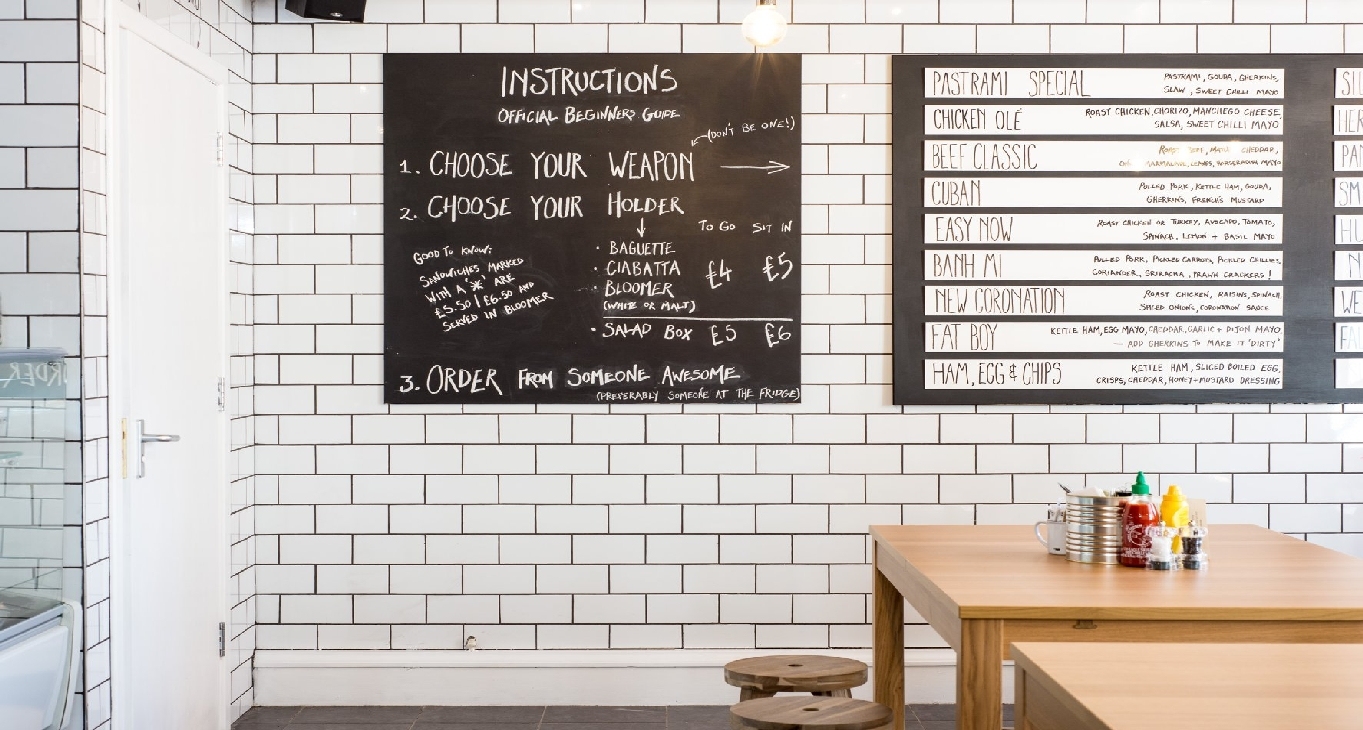 INSTRUCTIONS
OFFICIAL BEGINNERS GUIDE
(DON'T BE ONE!)
1. CHOOSE YOUR WEAPON
2. CHOOSE YOUR HOLDER
TO GO SIT IN
· BAGUETTE
· CIABATTA £4 £5
· BLOOMER
(WHITE OR MALT)
· SALAD BOX £5 £6
GOOD TO KNOW:
SANDWICHES MARKED
WITH A * ARE
£5.50 | £6.50 AND
SERVED IN BLOOMER
3. ORDER FROM SOMEONE AWESOME
(PREFERABLY SOMEONE AT THE FRIDGE)
PASTRAMI SPECIAL
PASTRAMI, GOUDA, GHERKINS,
SLAW, SWEET CHILLI MAYO
CHICKEN OLÉ
ROAST CHICKEN, CHORIZO, MANCHEGO CHEESE
SALSA, SWEET CHILLI MAYO
BEEF CLASSIC
CHEDDAR,
MARMALADE, LEAVES, HORSERADISH MAYO
CUBAN
PULLED PORK, KETTLE HAM, GOUDA,
GHERKINS, FRENCH'S MUSTARD
EASY NOW
ROAST CHICKEN OR TURKEY, AVOCADO, TOMATO,
SPINACH, LEMON + BASIL MAYO
BANH MI
PULLED PORK, PICKLED CARROTS, PICKLED CHILLIES,
CORIANDER, SRIRACHA, PRAWN CRACKERS!
NEW CORONATION
ROAST CHICKEN, RAISINS, SPINACH,
SPICED ONIONS, CORONATION SAUCE
FAT BOY
KETTLE HAM, EGG MAYO, CHEDDAR, GARLIC + DIJON MAYO
— ADD GHERKINS TO MAKE IT 'DIRTY'
HAM, EGG & CHIPS
KETTLE HAM, SLICED BOILED EGG,
CRISPS, CHEDDAR, HONEY-MUSTARD DRESSING